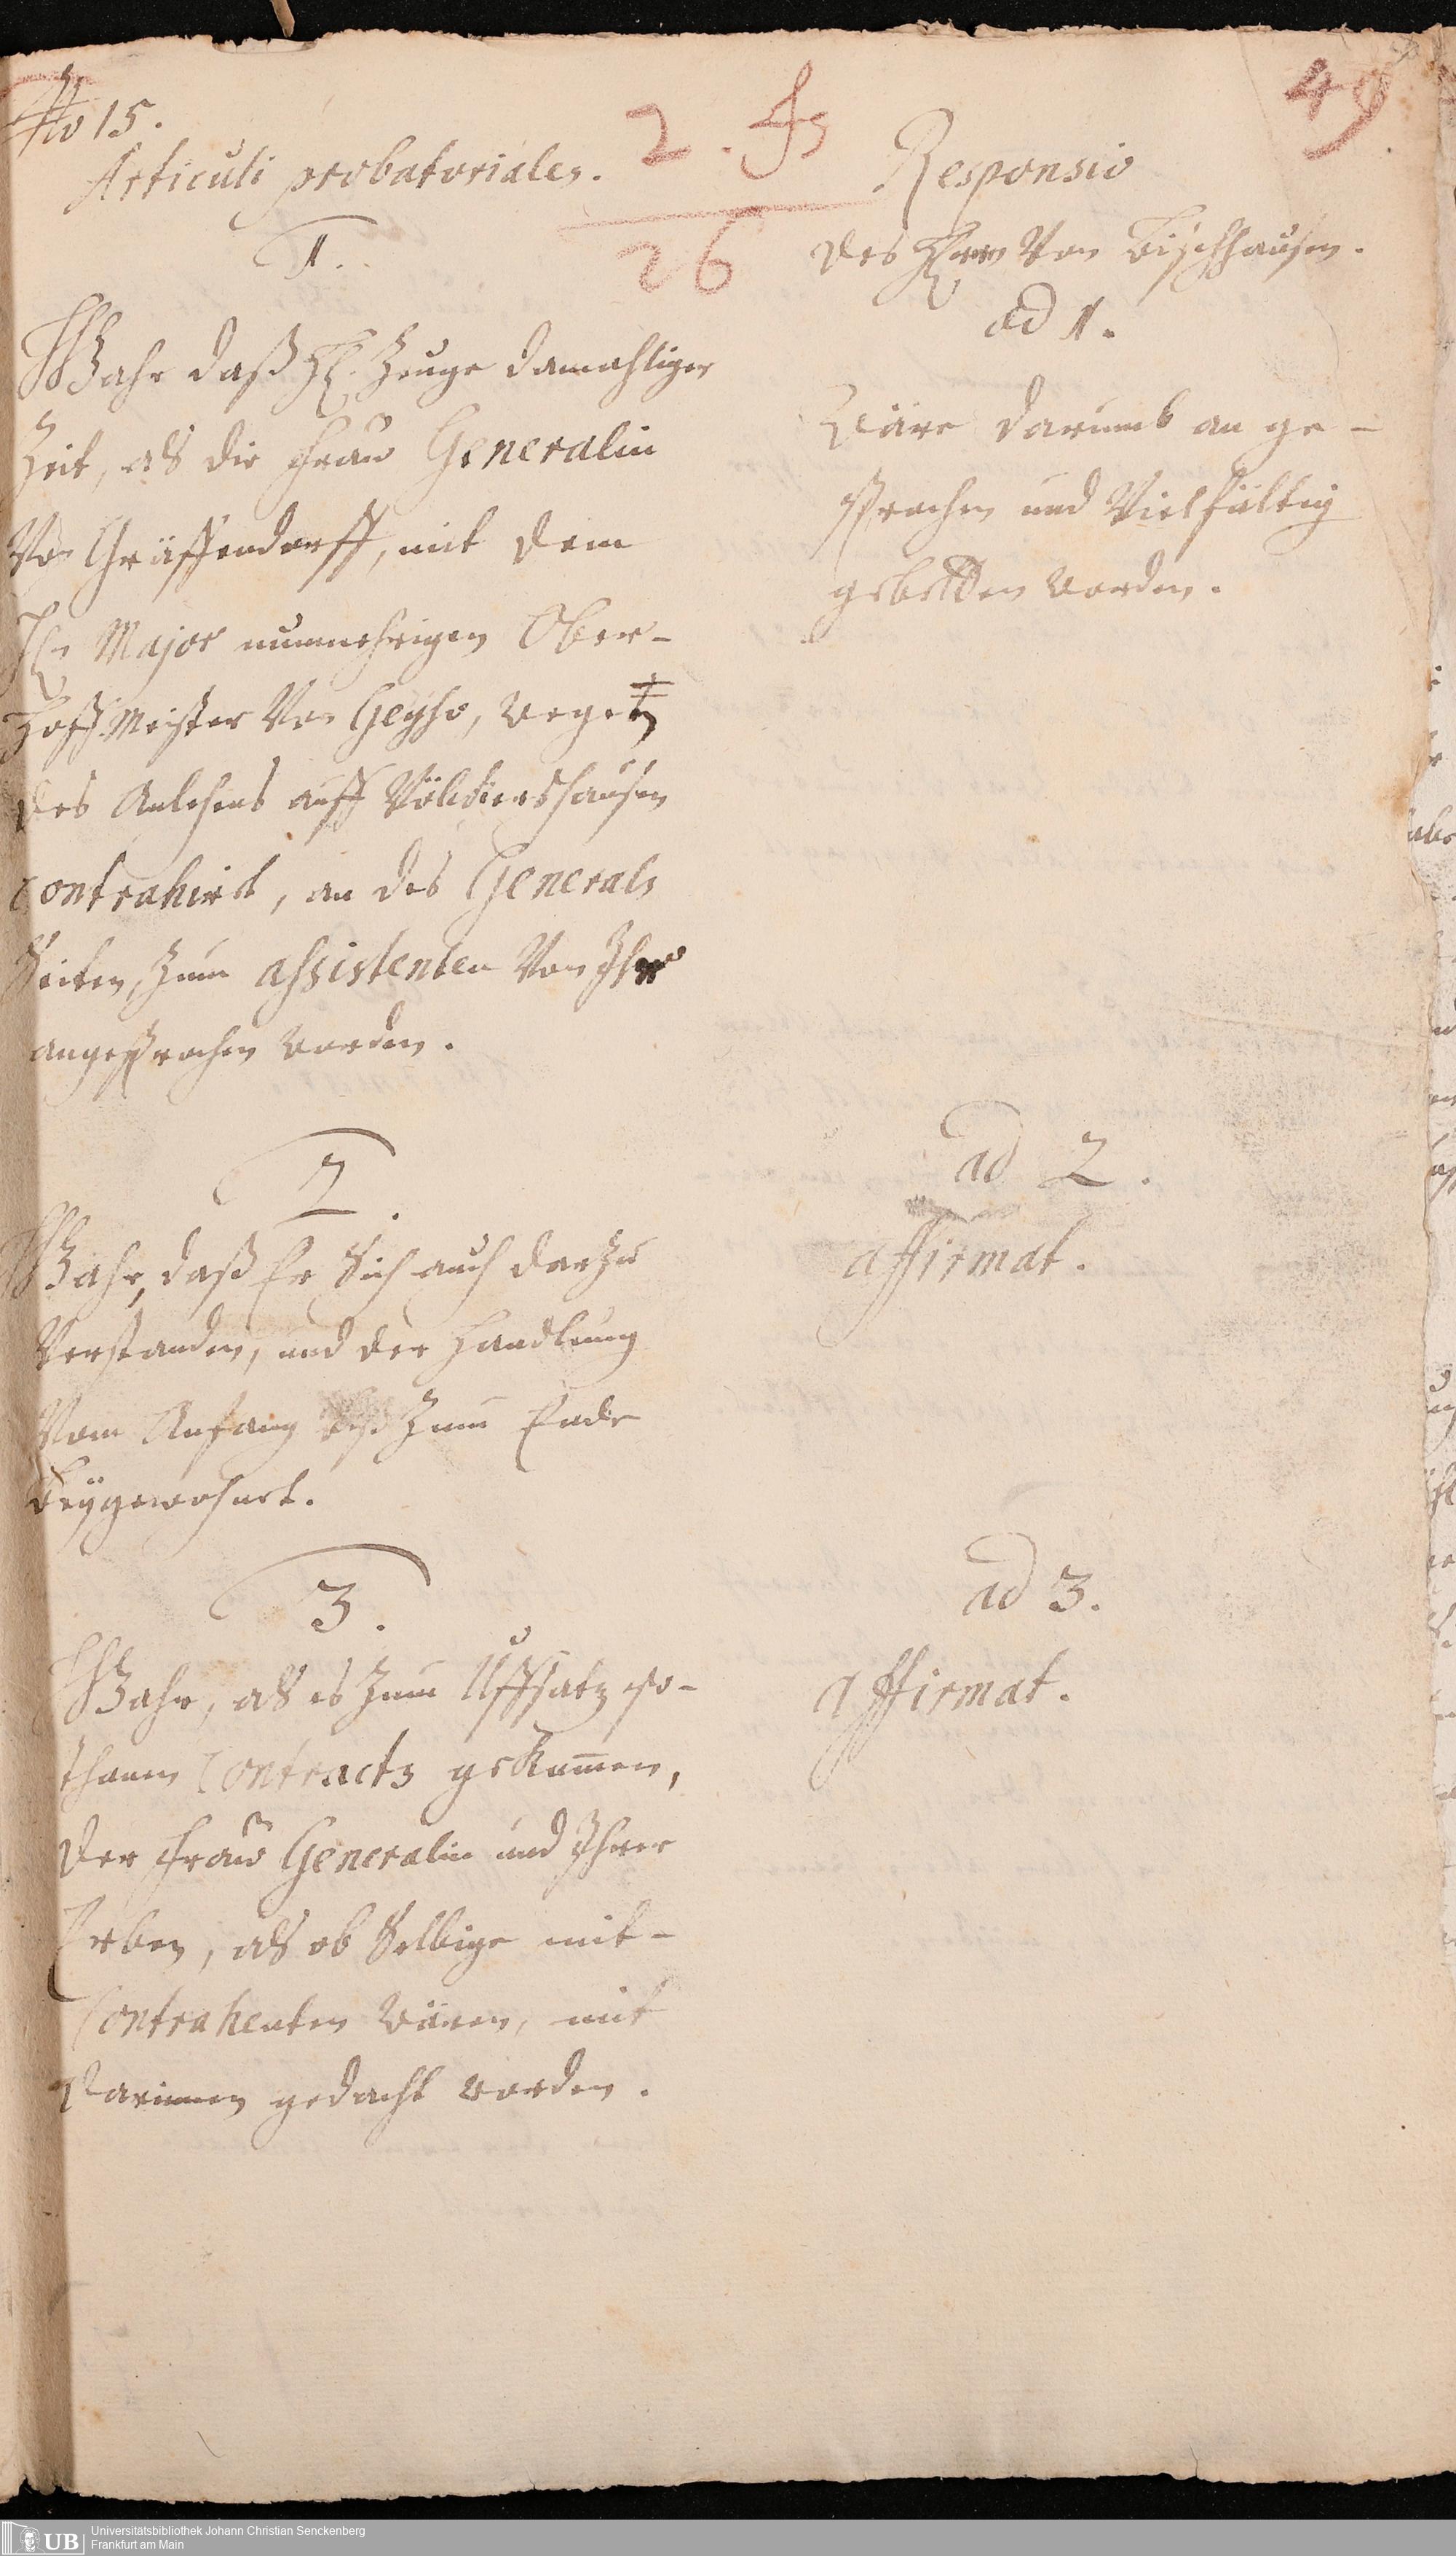 No 15.
2. fs
49
Articuli probatoriales.
26
1.
Wahr daß H. Zeuge damahliger
Zeit, als die Frau Generalin
Von Gräffendorff, mit dem
Hn Major nunmehrigen Ober-
Hoffmeister Von Geyso, wegen
des Anlehens auff Völckershausen
contrahirt, an des Generals
Seiten, zum assistenten Von Ihr
angesprochen worden.
2.
Wahr, daß Er Sich auch darzu
Verstanden, und der Handlung
Vom Anfang biß zum Ende
beygewohnet.
3.
Wahr, als es zum Uffsatz so-
thanen Contracts gekommen,
der Frau Generalin und Ihrer
Erben, als ob Selbige mit-
Contrahenten wären, mit
darinnen gedacht worden.
Responsio
des Herrn Von Bischhausen.
ad 1.
Wäre darumb an ge-
sprochen und Vielfältig
gebetten worden.
ad 2.
affirmat.
ad 3.
affirmat.
UB
Universitätsbibliothek Johann Christian Senckenberg
Frankfurt am Main